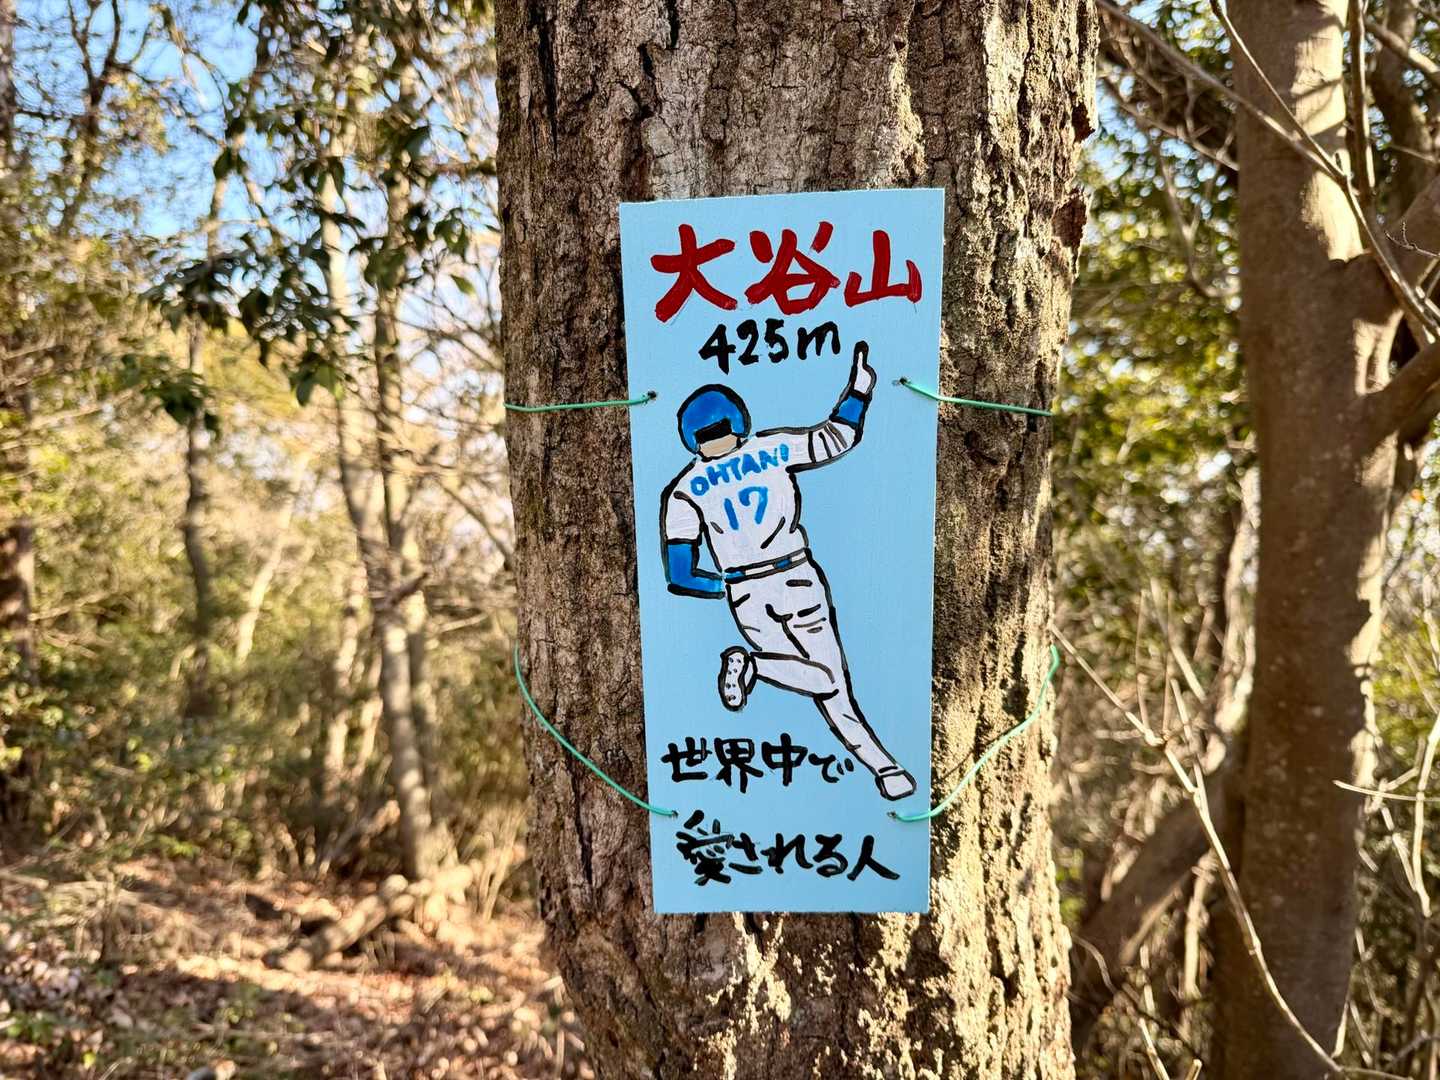 大谷山
425m
OHTANI
17
世界中で
愛される人